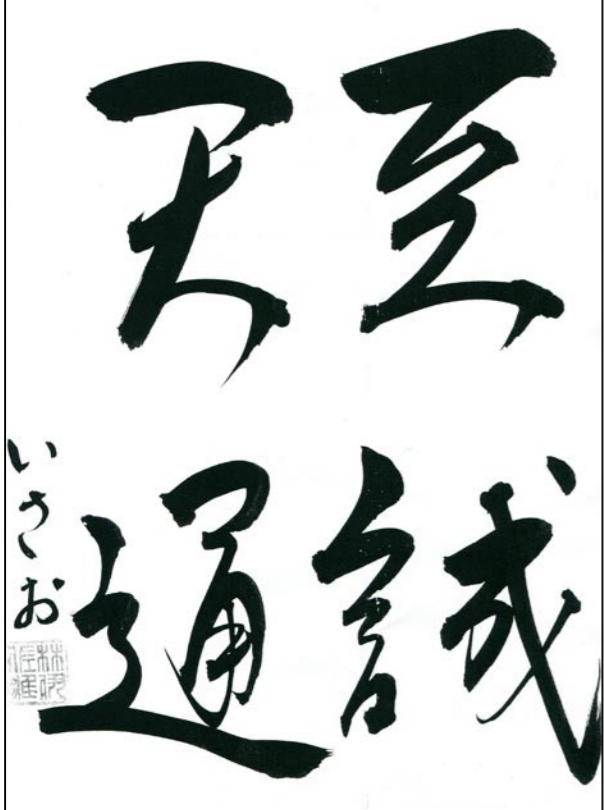 至誠
天通
いさお